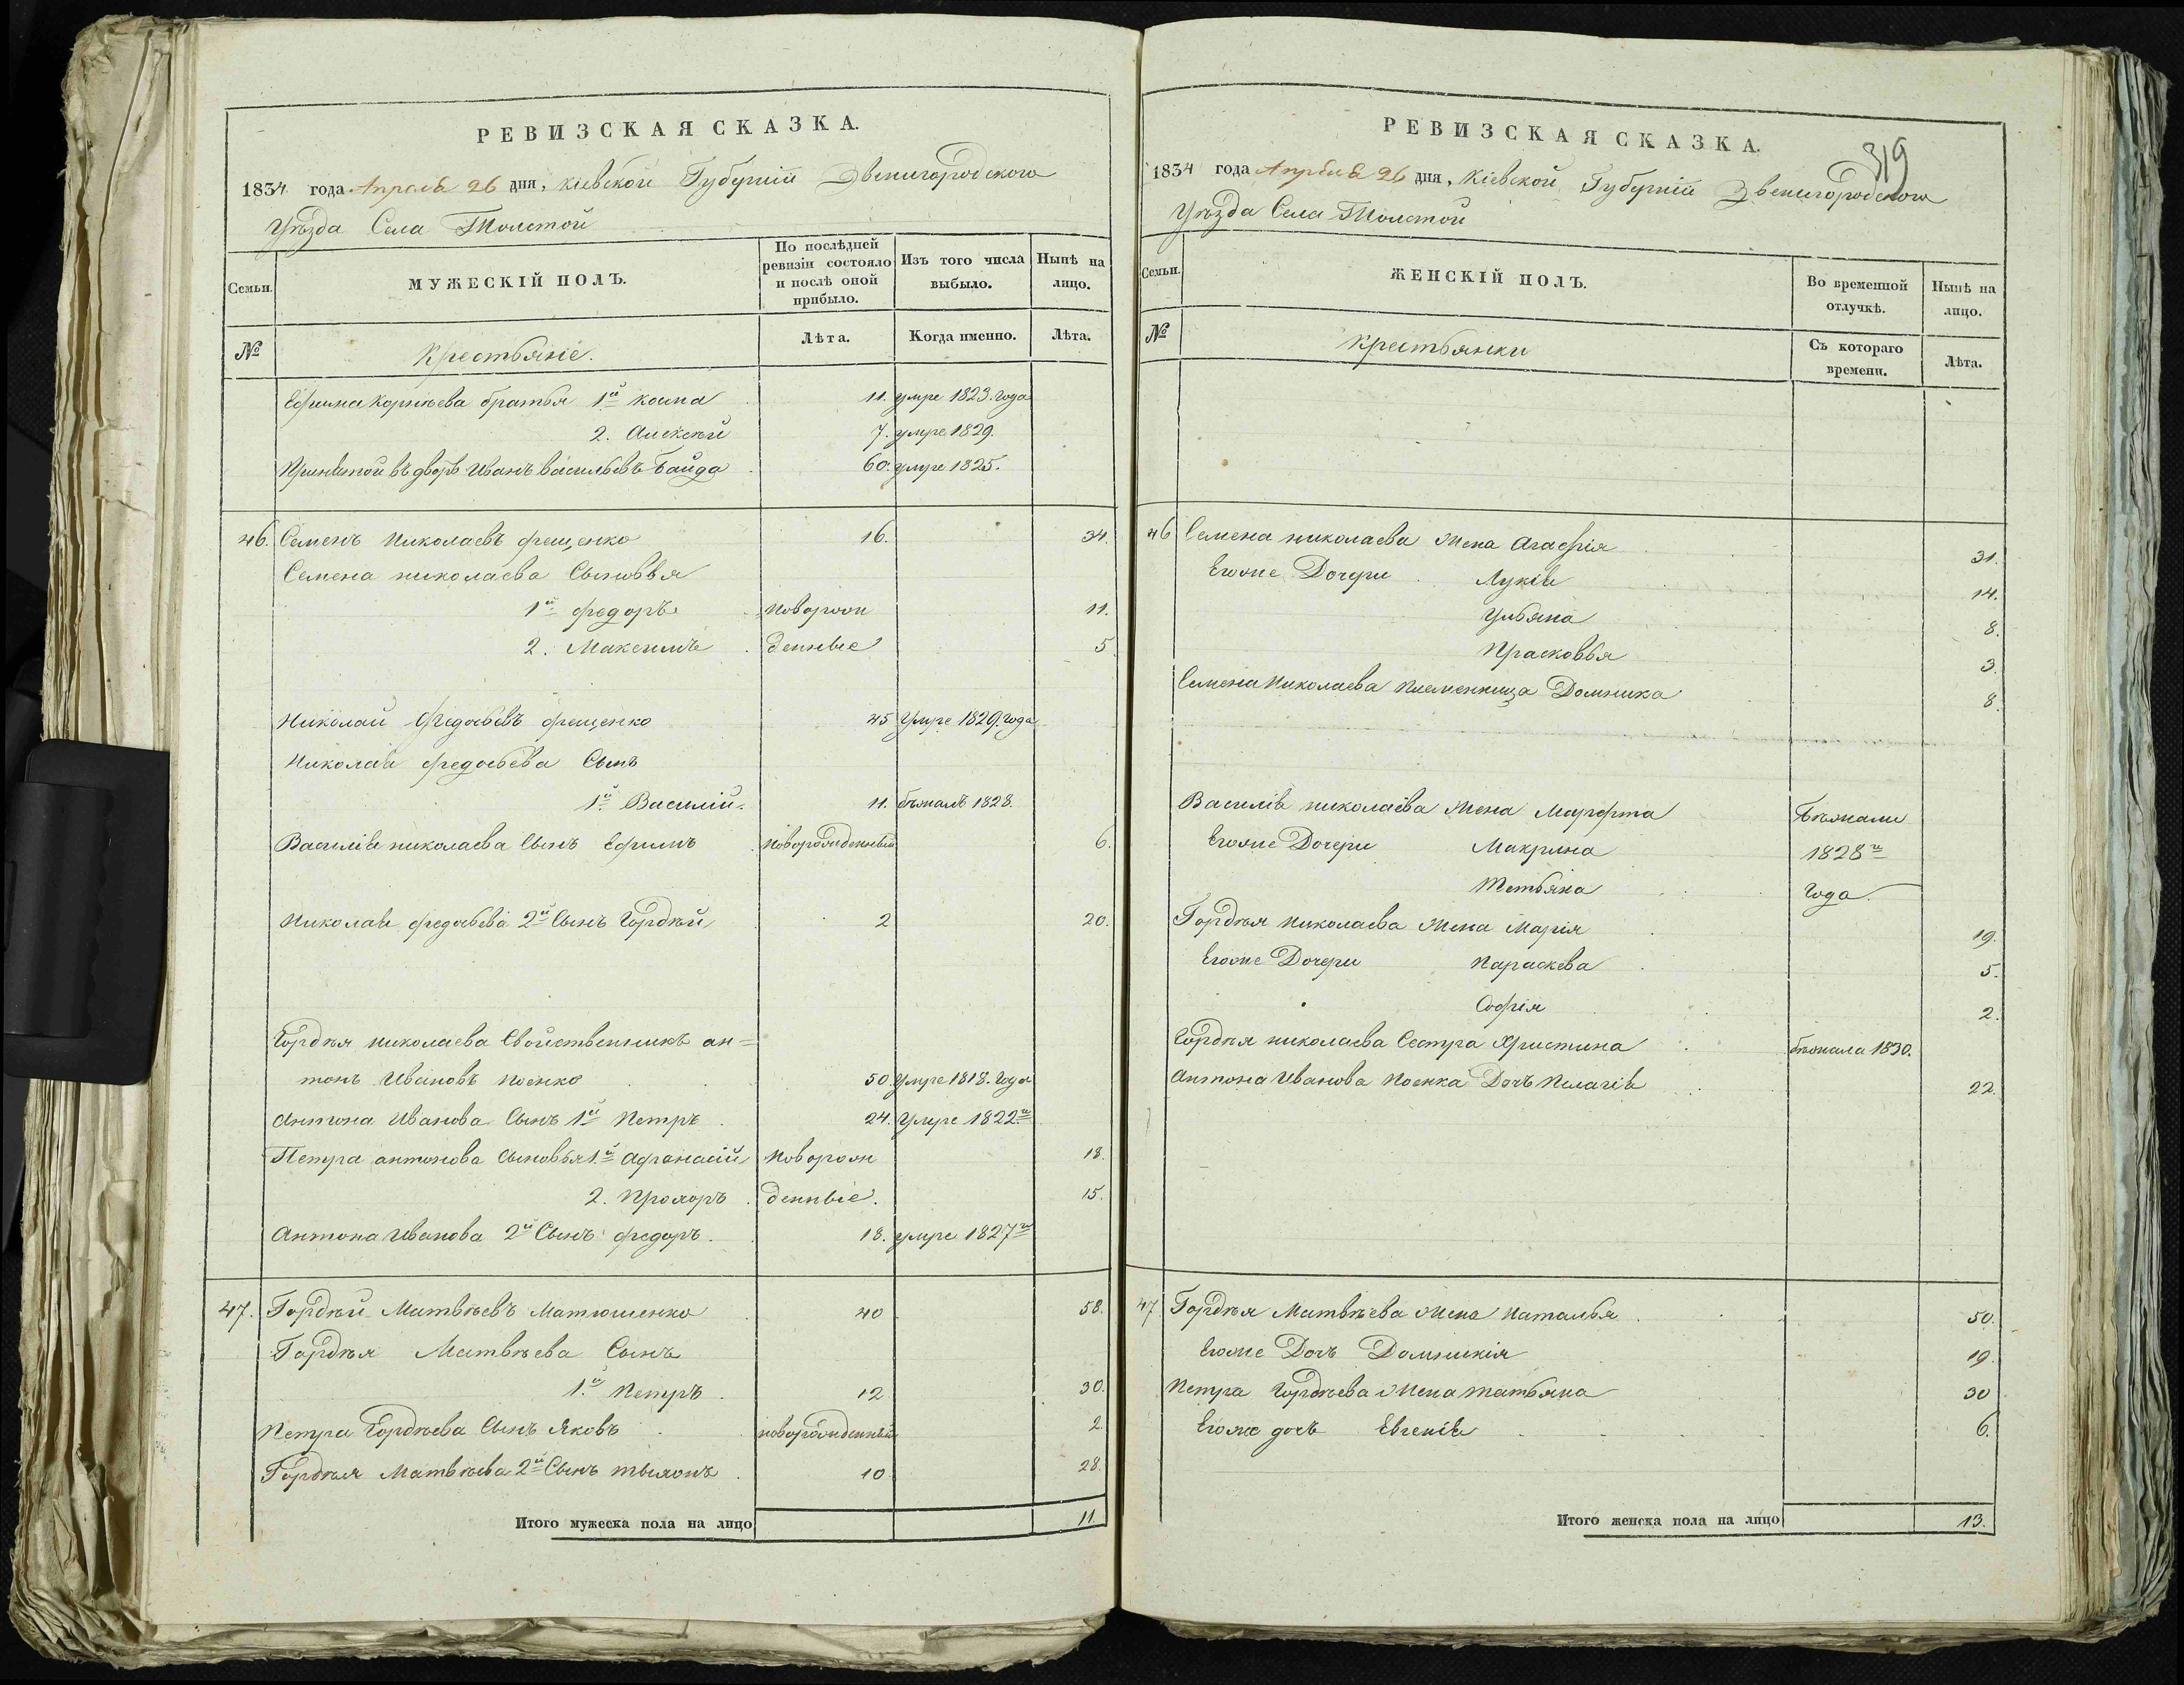 РЕВИЗСКАЯ СКАЗКА.
1834 года Апреля 26 дня, Кіевской Губерніи Звенигородского
Уѣзда Села Толстой
Семьи.
МУЖЕСКІЙ ПОЛЪ.
По послѣдней ревизіи состояло и послѣ оной прибыло.
Изъ того числа выбыло.
Нынѣ на лицо.
№ Крестьяніе. Лѣта. Когда именно. Лѣта.
Ефима Корнѣева братья 1й Косма 11. умре 1823. Года
2. Алексѣй 7. умре 1829.
Принятой въ дворъ Иванъ Васильевъ Байда 60. умре 1825.
46. Семенъ Николаевъ Фещенко 16. 34.
Семена Николаева Сыновья
1й Федоръ Новорож 11.
2. Максимъ денные 5
Николай Федосьевъ Фещенко 45 Умре 1829. Года
Николая Федосьева Сынъ
1й Василій. 11. бѣжалъ 1828.
Василія Николаева Сынъ Ефимъ Новорожденный 6.
Николая Федосьева 2й Сынъ Гордѣй 2 20.
Гордѣя Николаева Свойственникъ ан=
тонъ Ивановъ Поенко 50 Умре 1818. Года
Антона Иванова Сынъ 1й Петръ 24. Умре 1822го
Петра Антонова Сыновья 1й Афанасій Новорож 18.
2. Прохоръ денные. 15.
Антона Иванова 2й Сынъ Федоръ. 18. умре 1827го
47. Гордѣй Матвѣевъ Матюшенко 40 58.
Гордѣя Матвѣева Сынъ
1й Петръ. 12 30.
Петра Гордѣева Сынъ Яковъ новорожденный 2.
Гордѣя Матвѣева 2й Сынъ Тыхонъ 10 28.
Итого мужеска пола на лицо 11.
319
РЕВИЗСКАЯ СКАЗКА.
1834 года Апреля 26 дня, Кіевской Губерніи Звенигородского
Уѣзда Села Толстой
Семьи.
ЖЕНСКІЙ ПОЛЪ.
Во временной отлучкѣ.
Нынѣ на лицо.
№ Крестьянки Съ котораго времени. Лѣта.
46 Семена Николаева Жена Агафія 31.
Егоже Дочери Лукія 14.
Ульяна 8.
Прасковья 3.
Семена Николаева Племенница Домника 8.
Василія Николаева Жена Марфта Бѣжали
Егоже Дочери Макрина 1828го
Тетьяна Года.
Гордѣя Николаева Жена Марія 19.
Егоже Дочери Параскева 5.
Софія 2.
Гордѣя Николаева Сестра Христина бѣжала 1830.
Антона Иванова Поенка Дочь Пелагія 22.
47 Гордѣя Матвѣева Жена Наталья 50.
Егоже Дочь Домникія 19.
Петра Гордѣева Жена Татьяна 30
Егоже дочь Евгенія 6.
Итого женска пола на лицо 13.